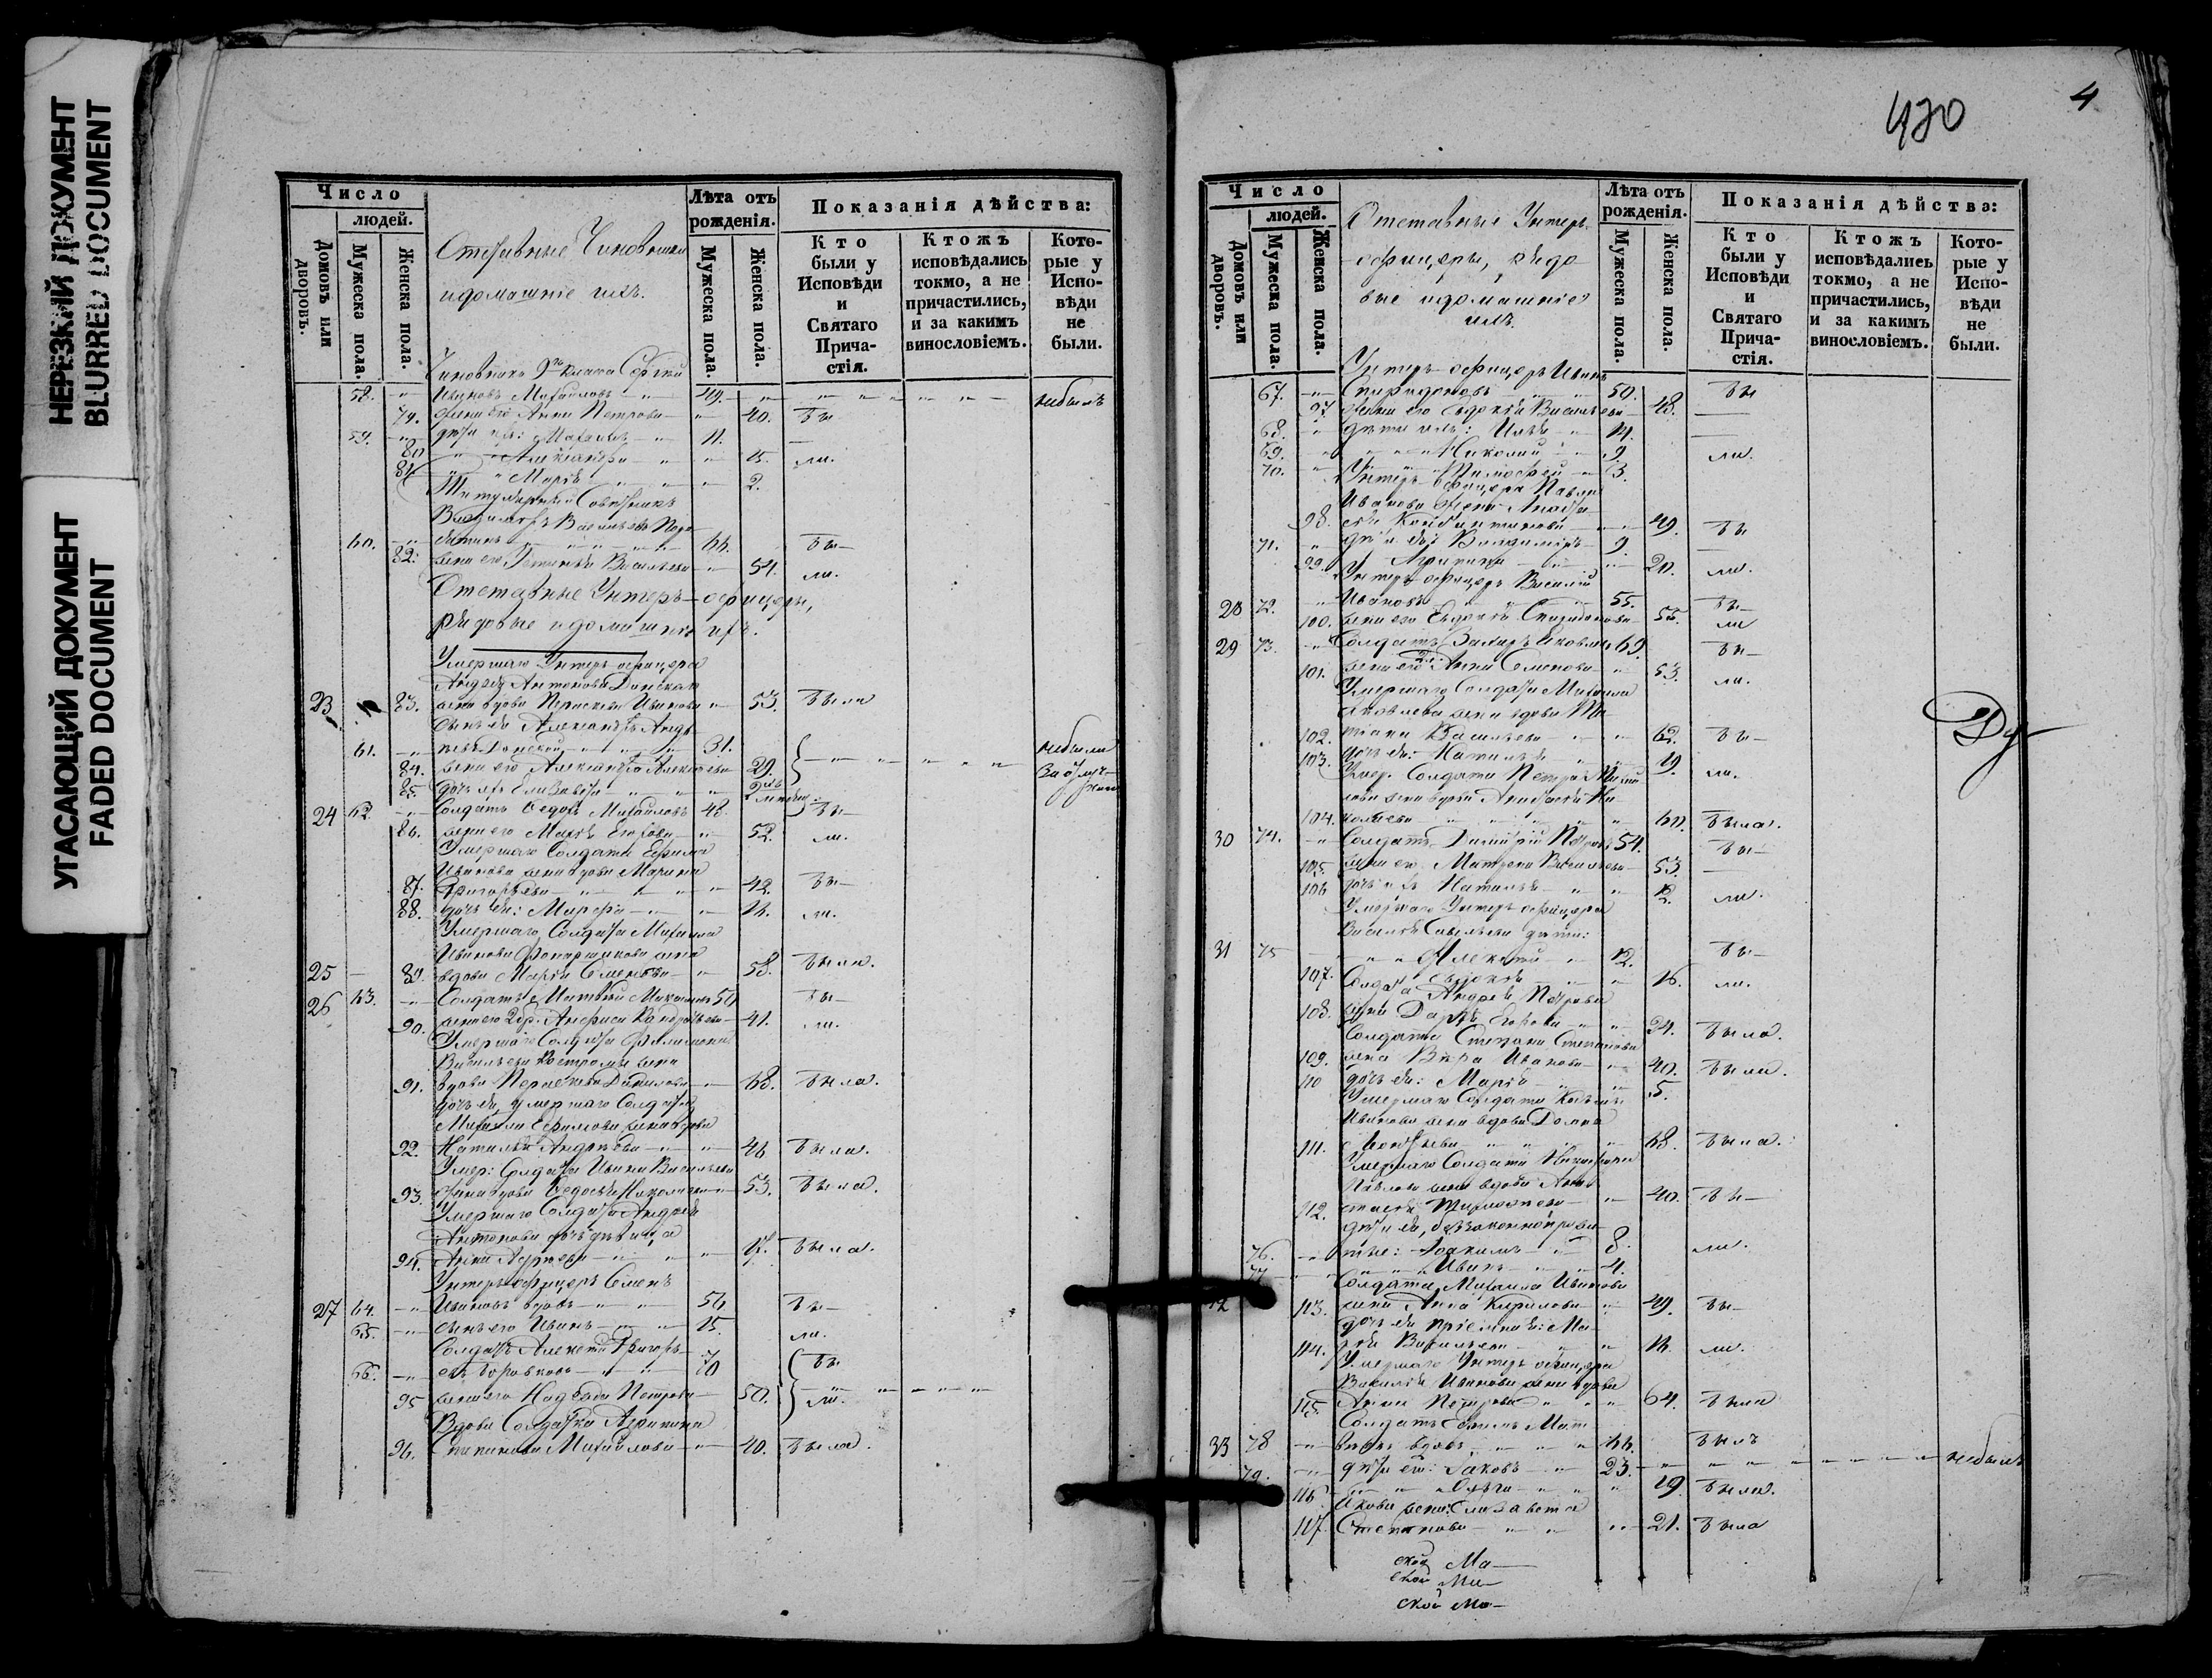 НЕРЕЗКИЙ ДОКУМЕНТ
BLURRED DOCUMENT
УГАСАЮЩИЙ ДОКУМЕНТ
FADED DOCUMENT
Число
людей.
Домовъ или дворовъ.
Мужеска пола.
Женска пола.
Отставные Чиновники
и домашніе ихъ.
Лѣта отъ рожденія.
Мужеска пола.
Женска пола.
Показанія дѣйства:
Кто были у Исповѣди и Святаго Прича-стія.
Ктожъ исповѣдались токмо, а не причастились, и за какимъ винословіемъ.
Кото-рые у Испо-вѣди не были.
Чиновникъ 9го класса Сергѣй
58. Ивановъ Михайловъ 49. небылъ
79. жена его Анна Петрова 40. бы
59. дѣти ихъ: Михаилъ 11.
80 Александра 15. ли.
81 Марія 2.
Титулярный Совѣтникъ
Владимиръ Васильевъ
60. 66. бы
82. жена его Устинья Васильева 54. ли.
Отставные Унтеръ-офицеры,
рядовые и домашніе ихъ.
Умершаго Унтеръ-офицера
Андрея Антонова Донская
23 83. жена вдова Параскева Иванова 53. была
сынъ ея Александръ Андр
61. еевъ Донской 31. небыли
84. жена его Александра Алексѣева 29.
85. дочь ихъ Елизавета
24 62. Солдатъ Ѳедоръ Михайловъ 48. бы
86. жена его Марія Егорова 52. ли.
Умершаго Солдата Ефима
Иванова жена вдова Марина
87. Григорьева 42. бы
88. дочь ея: Марфа 14. ли.
Умершаго Солдата Михаила
Иванова Фонарщикова жена
25 89. вдова Марія Семенова 58. была.
26 63. Солдатъ Матвѣй 50 бы
90. жена его 2 бр. Анфиса 41. ли.
Умершаго Солдата Филимона
Васильева жена
91. вдова Параскева Данилова 68. была.
дочь ея, умершаго Солдата
Михаила Ефимова жена вдова
92. Наталья Андреева 46 была.
Умер: Солдата Ивана Васильева
93 жена вдова Ѳедосья Николаева 53. была.
Умершаго Солдата Андрея
Антонова дочь дѣвица
94. Анна Андреева 17. была.
Унтеръ-офицеръ Семенъ
27 64. Ивановъ вдовъ 56 бы
65. сынъ его Иванъ 15. ли.
Солдатъ Алексѣй Григорь
66. евъ Боровковъ 70 бы
95 жена его Надежда Петрова 50. ли.
Вдова Солдатка Агрипина
96. Степанова Михайлова 40. была.
430
4
Число
людей.
Домовъ или дворовъ.
Мужеска пола.
Женска пола.
Отставные Унтеръ-
офицеры, рядо
вые и домашніе
ихъ.
Лѣта отъ рожденія.
Мужеска пола.
Женска пола.
Показанія дѣйства:
Кто были у Исповѣди и Святаго Прича-стія.
Ктожъ исповѣдались токмо, а не причастились, и за какимъ винословіемъ.
Кото-рые у Испо-вѣди не были.
Унтеръ-офицеръ Иванъ
67. Спиридоновъ 50. бы
97 жена его Евдокія Васильева 48.
68. дѣти ихъ: Илья 14.
69. Николай 9. ли.
70. Тимофей 3.
Унтеръ офицера Павла
Иванова жена Анаста
98. сія Константинова 49. бы
71. дѣти ея: Владиміръ 9.
99. Агрипина 20. ли.
Унтеръ-офицеръ Василій
28 72. Ивановъ 55. бы
100. жена его Евдокія Спиридонова 55. ли
29 73. Солдатъ Захаръ Яковлевъ 69. бы
101. жена его Анна Семенова 53. ли.
Умершаго Солдата Михаила
Яковлева жена вдова Та
102. тіана Васильева 62. бы
103. дочь ея: Наталья 19. ли.
Умер. Солдата Петра
жена вдова Анастасія Ни
104. колаева 60. была.
30 74. Солдатъ Димитрій Петровъ 54. бы
105. жена его Матрена Васильева 53.
106 дочь ихъ Наталья 12. ли.
Умершаго Унтеръ офицера
Василія Савельева дѣти:
31 75 Алексѣй 12. бы
107. Евдокія 16. ли.
Солдата Андрея Петрова
108. жена Дарья Егорова 24. была.
Солдата Степана Степанова
109. жена Вѣра Иванова 40. была.
110 дочь ея: Марія 5.
Умершаго Солдата
Иванова жена вдова Домна
111. Леонтьева 68. была.
Умершаго Солдата
Павлова жена вдова Анас
112. тасія Тимофеева 40. бы
дѣти ея, беззаконноприжи
76. тые: Іоакимъ 8. ли.
77 Иванъ 4.
Солдата Михаила Иванова
32 113. жена Анна Кирилова 49. бы
дочь ея пріемная: Ма
114. рія Васильева 14. ли.
Умершаго Унтеръ офицера
Василія Иванова жена вдова
115. Анна Петрова 64. была
Солдатъ Ефимъ Мат
33 78 вѣевъ вдовъ 66. былъ
79. дѣти его: Яковъ 23. небылъ
116 Ольга 19. была.
Якова жена: Елизавета
117. Степанова 21. была
Ду
ской Ма
ской Ма
ской Ма